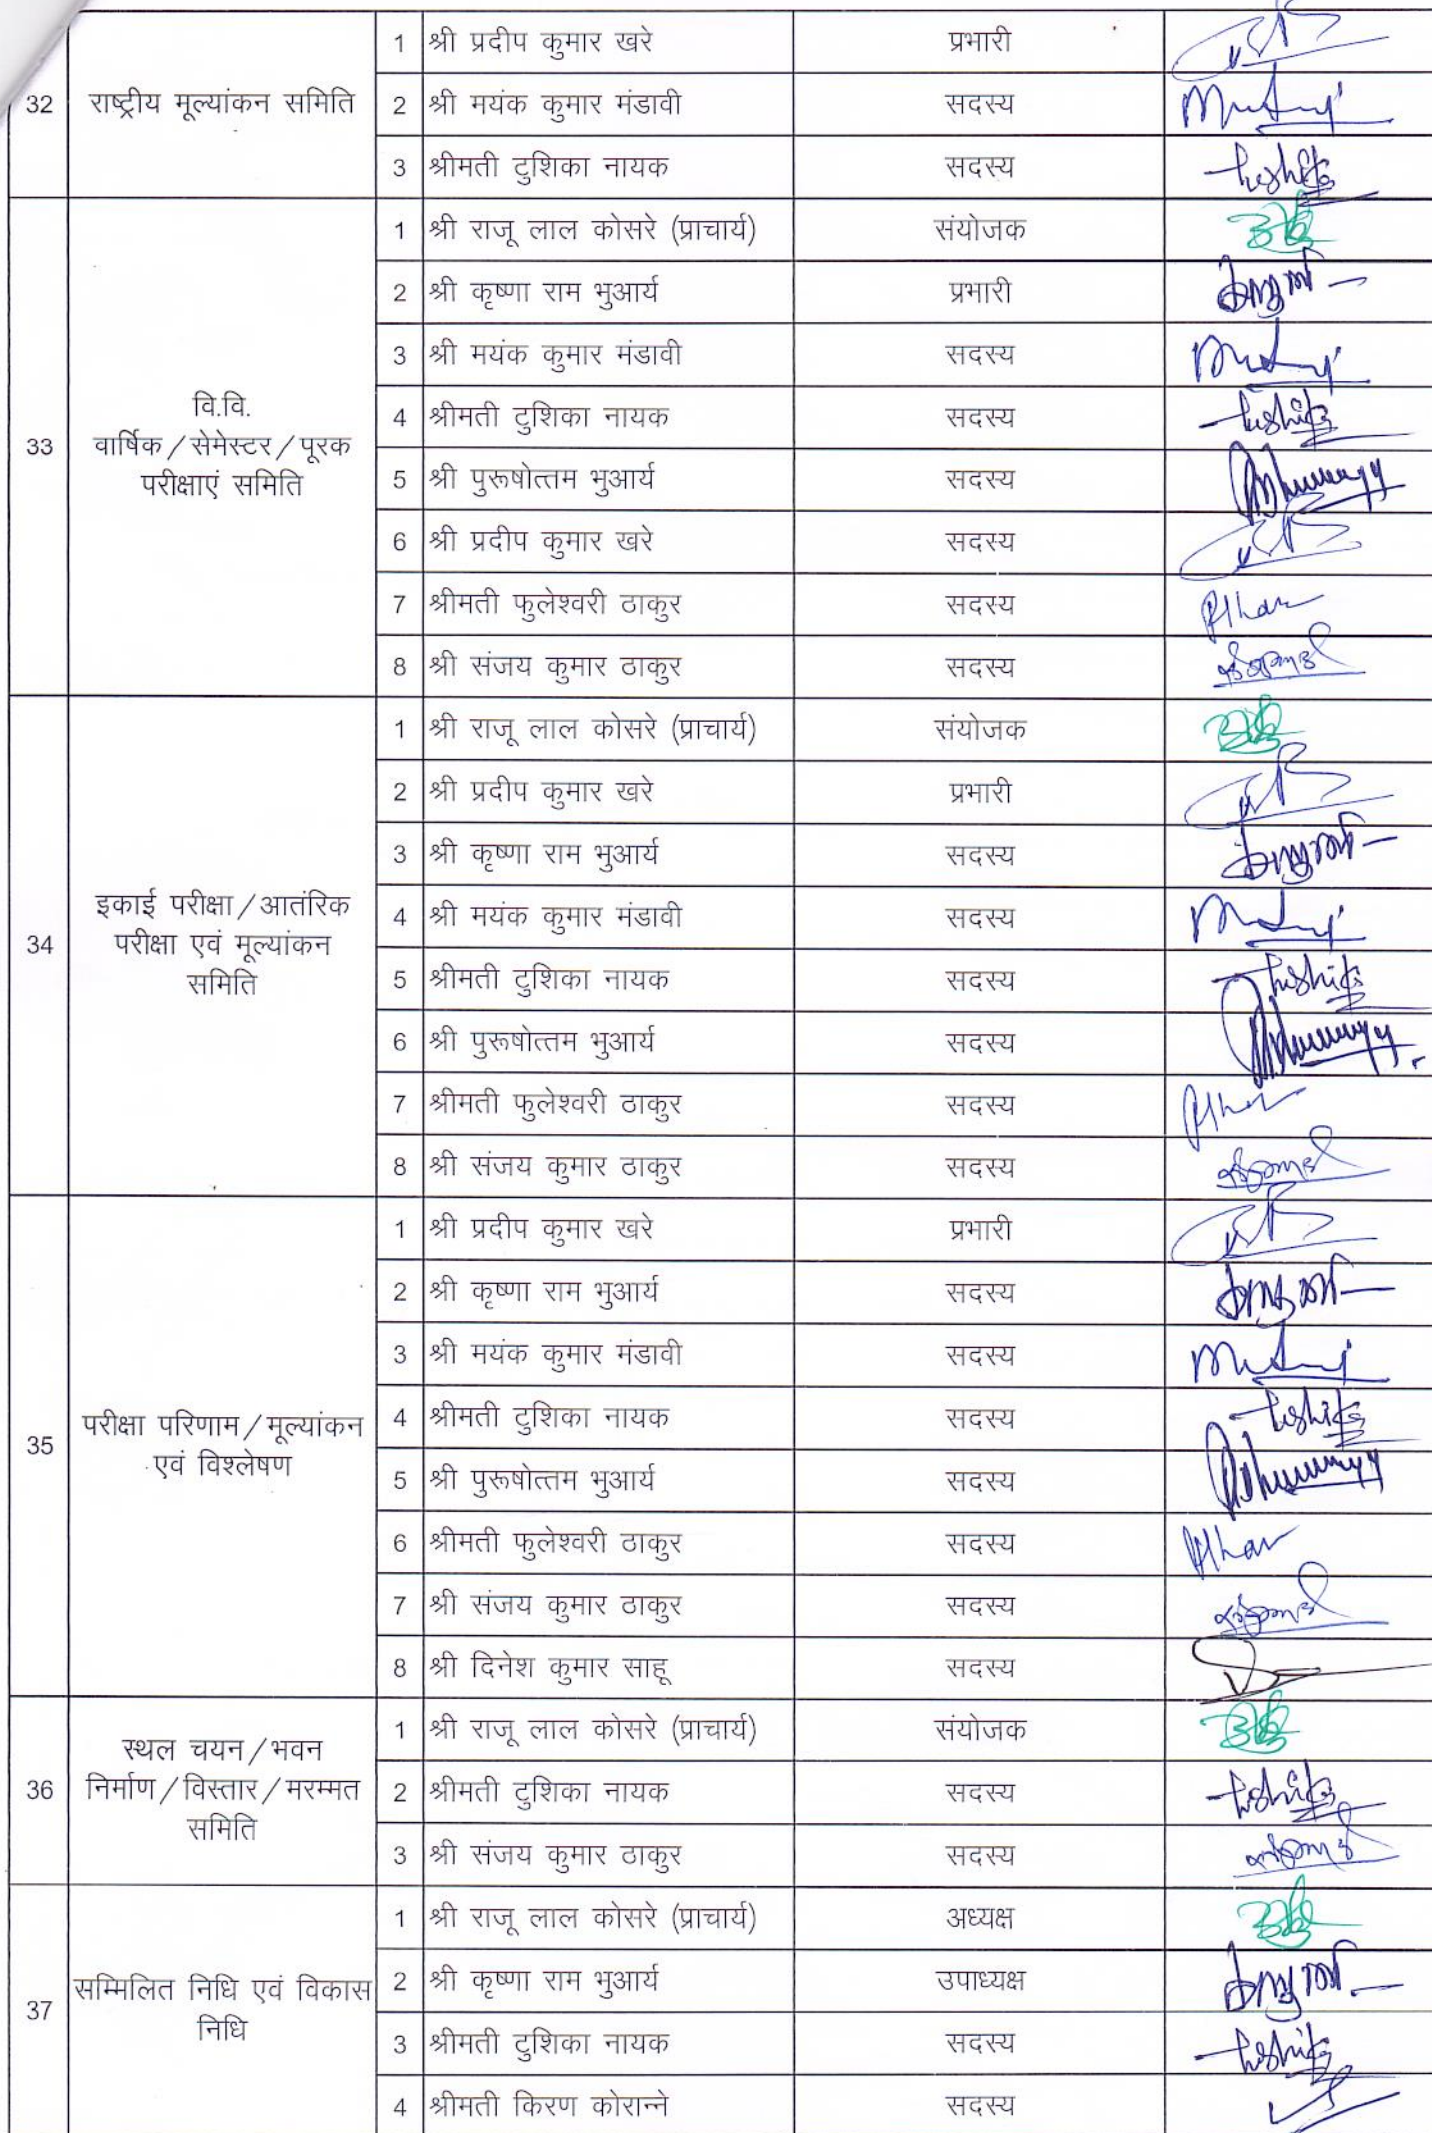 32 राष्ट्रीय मूल्यांकन समिति
1 श्री प्रदीप कुमार खरे प्रभारी
2 श्री मयंक कुमार मंडावी सदस्य
3 श्रीमती टुशिका नायक सदस्य
33 वि.वि.
वार्षिक/सेमेस्टर/पूरक
परीक्षाएं समिति
1 श्री राजू लाल कोसरे (प्राचार्य) संयोजक
2 श्री कृष्णा राम भुआर्य प्रभारी
3 श्री मयंक कुमार मंडावी सदस्य
4 श्रीमती टुशिका नायक सदस्य
5 श्री पुरूषोत्तम भुआर्य सदस्य
6 श्री प्रदीप कुमार खरे सदस्य
7 श्रीमती फुलेश्वरी ठाकुर सदस्य
8 श्री संजय कुमार ठाकुर सदस्य
34 इकाई परीक्षा/आतंरिक
परीक्षा एवं मूल्यांकन
समिति
1 श्री राजू लाल कोसरे (प्राचार्य) संयोजक
2 श्री प्रदीप कुमार खरे प्रभारी
3 श्री कृष्णा राम भुआर्य सदस्य
4 श्री मयंक कुमार मंडावी सदस्य
5 श्रीमती टुशिका नायक सदस्य
6 श्री पुरूषोत्तम भुआर्य सदस्य
7 श्रीमती फुलेश्वरी ठाकुर सदस्य
8 श्री संजय कुमार ठाकुर सदस्य
35 परीक्षा परिणाम/मूल्यांकन
एवं विश्लेषण
1 श्री प्रदीप कुमार खरे प्रभारी
2 श्री कृष्णा राम भुआर्य सदस्य
3 श्री मयंक कुमार मंडावी सदस्य
4 श्रीमती टुशिका नायक सदस्य
5 श्री पुरूषोत्तम भुआर्य सदस्य
6 श्रीमती फुलेश्वरी ठाकुर सदस्य
7 श्री संजय कुमार ठाकुर सदस्य
8 श्री दिनेश कुमार साहू सदस्य
36 स्थल चयन/भवन
निर्माण/विस्तार/मरम्मत
समिति
1 श्री राजू लाल कोसरे (प्राचार्य) संयोजक
2 श्रीमती टुशिका नायक सदस्य
3 श्री संजय कुमार ठाकुर सदस्य
37 सम्मिलित निधि एवं विकास
निधि
1 श्री राजू लाल कोसरे (प्राचार्य) अध्यक्ष
2 श्री कृष्णा राम भुआर्य उपाध्यक्ष
3 श्रीमती टुशिका नायक सदस्य
4 श्रीमती किरण कोरान्ने सदस्य